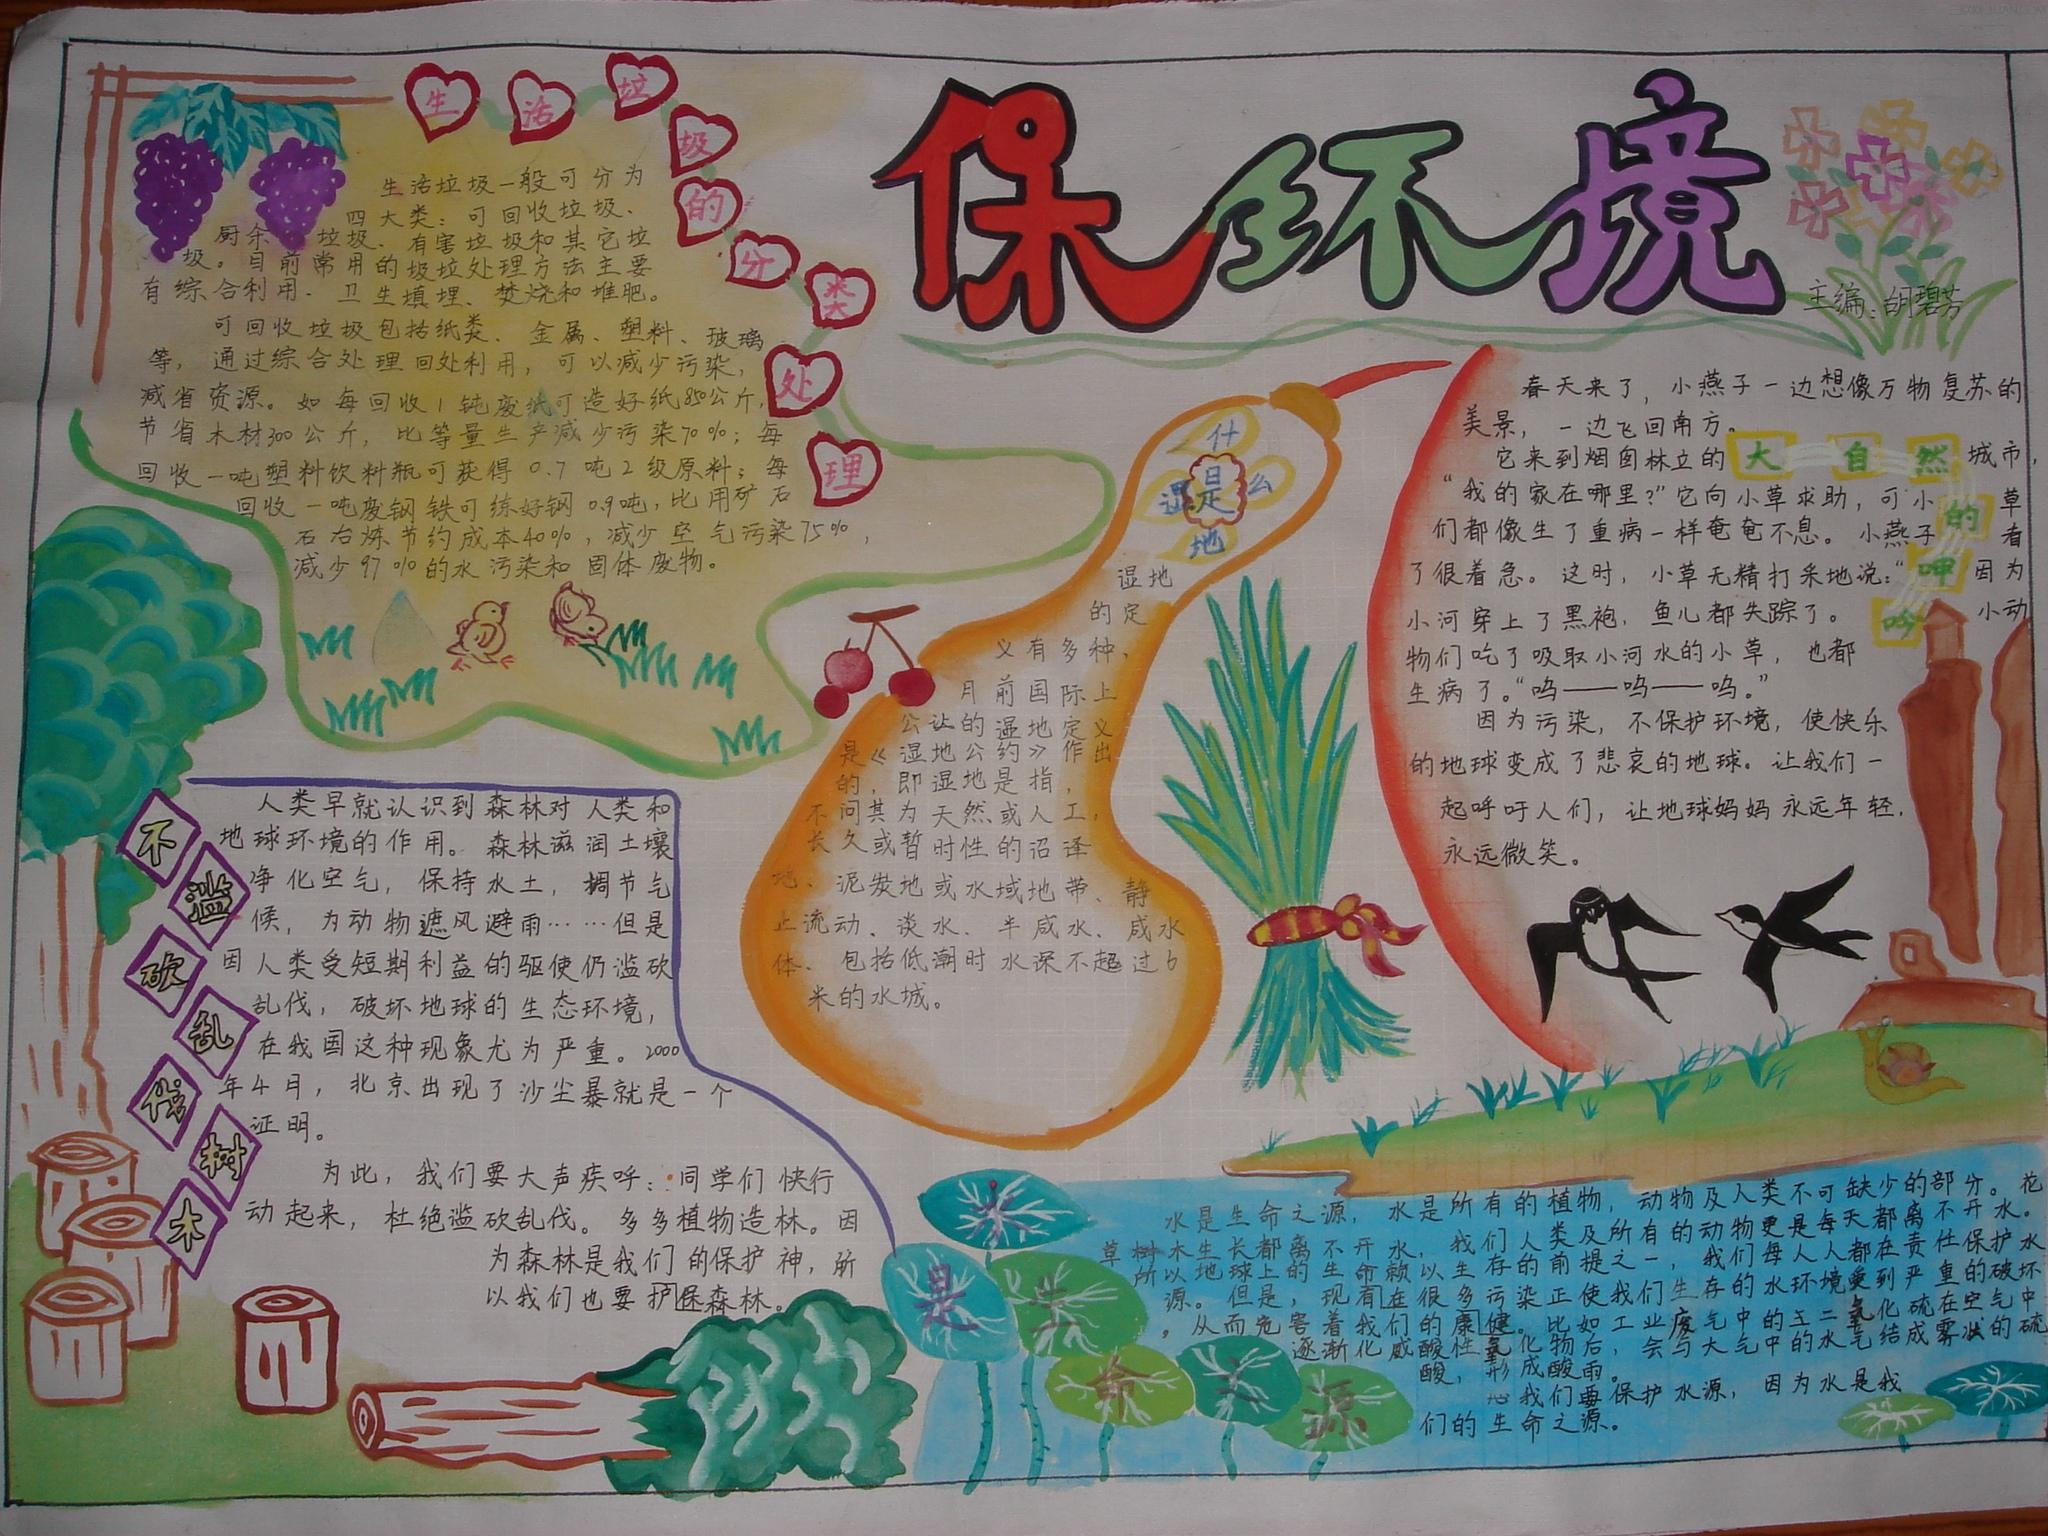 保环境
主编：胡碧芳
生活垃圾的分类处理
生活垃圾一般可分为
四大类：可回收垃圾、
厨余垃圾、有害垃圾和其它垃
圾。目前常用的圾垃处理方法主要
有综合利用、卫生填埋、焚烧和堆肥。
可回收垃圾包括纸类、金属、塑料、玻璃
等，通过综合处理回处利用，可以减少污染，
减省资源。如每回收1钝废纸可造好纸850公斤，
节省木材300公斤，比等量生产减少污染70%；每
回收一吨塑料饮料瓶可获得0.7吨2级原料；每
回收一吨废钢铁可练好钢0.9吨，比用矿石
石冶炼节约成本40%，减少空气污染75%，
减少97%的水污染和固体废物。
什么是湿地
湿地
的定
义有多种，
月前国际上
公让的湿地定义
是《湿地公约》作出
的，即湿地是指，
不问其为天然或人工，
长久或暂时性的沼译
地、泥炭地或水域地带、静
止流动、淡水、半咸水、咸水
体、包括低潮时水深不超过6
米的水城。
大自然的呻吟
春天来了，小燕子一边想像万物复苏的
美景，一边飞回南方。
它来到烟囱林立的城市，
“我的家在哪里?”它向小草求助，可小草
们都像生了重病一样奄奄不息。小燕子看
了很着急。这时，小草无精打采地说：“因为
小河穿上了黑袍，鱼儿都失踪了。小动
物们吃了吸取小河水的小草，也都
生病了。“呜——呜——呜。”
因为污染，不保护环境，使快乐
的地球变成了悲哀的地球。让我们一
起呼吁人们，让地球妈妈永远年轻，
永远微笑。
不滥砍乱伐树木
人类早就认识到森林对人类和
地球环境的作用。森林滋润土壤
净化空气，保持水土，调节气
候，为动物遮风避雨……但是
因人类受短期利益的驱使仍滥砍
乱伐，破坏地球的生态环境，
在我国这种现象尤为严重。2000
年4月，北京出现了沙尘暴就是一个
证明。
为此，我们要大声疾呼：同学们快行
动起来，杜绝滥砍乱伐。多多植物造林。因
为森林是我们的保护神，所
以我们也要护保森林。
水是生命之源
水是生命之源，水是所有的植物，动物及人类不可缺少的部分。花
草树木生长都离不开水，我们人类及所有的动物更是每天都离不开水。
所以地球上的生命赖以生存的前提之一，我们每人人都在责任保护水
源。但是，现有在很多污染正使我们生存的水环境受到严重的破坏
，从而危害着我们的康健。比如工业废气中的二氧化硫在空气中
逐渐化成酸性氧化物后，会与大气中的水气结成雾状的硫
酸，形成酸雨。
我们要保护水源，因为水是我
们的生命之源。